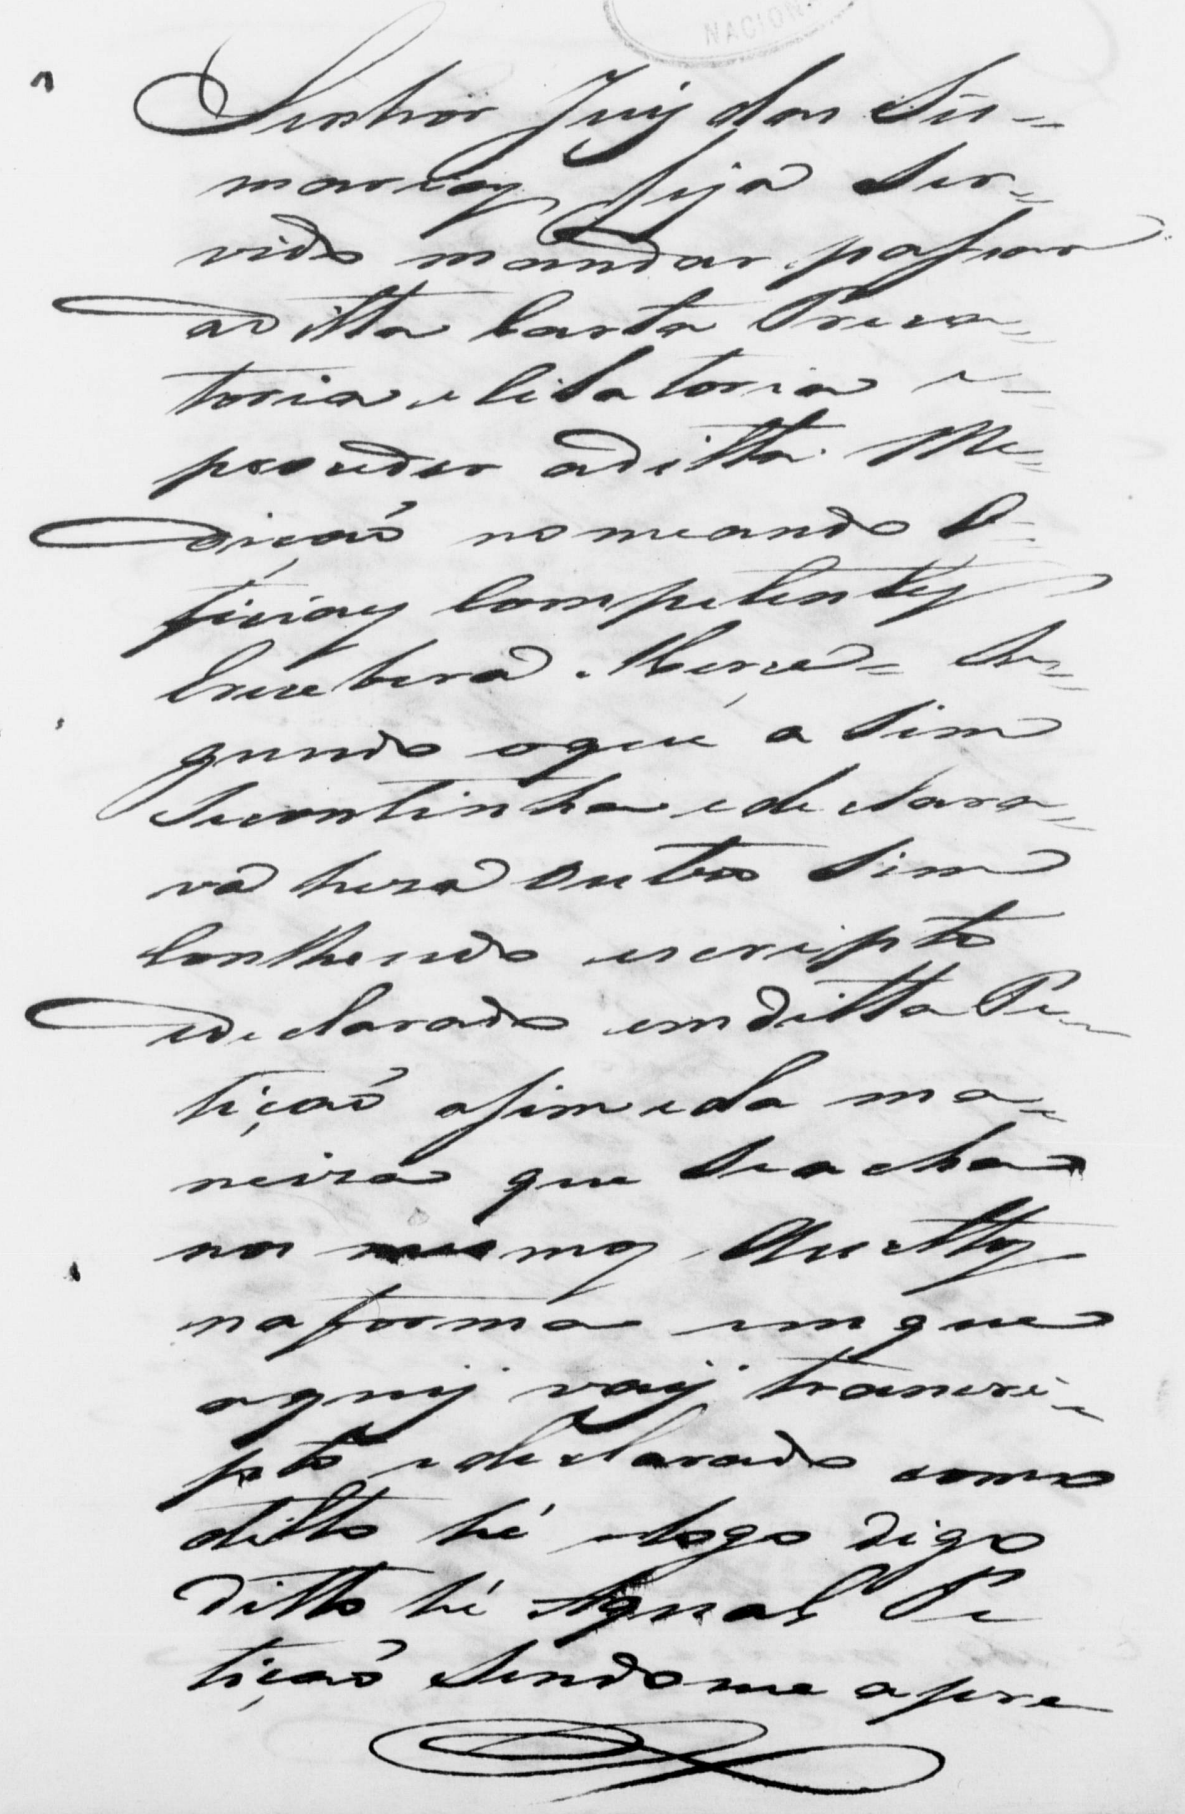 NACION
Senhor Juiz das Sis=
marias Seja Ser=
vido mandar passar
aditta Carta Preca=
toria e Citatoria e=
proceder aditta Me=
dição nomeando O=
ficiais Competentes
Ereceberá Merce= Se=
gundo oque a Sim
Secontinha edeclara=
va hera Outro Sim
Conthendo escripto
edeclarado emditta Pe=
tição asim eda ma=
neira que Seacha
nos mesmos Auttos
naforma emque
aquij vaij transcri=
pto edeclarado como
ditto hé elogo digo
ditto hé Aqual Pe
tição Sendome apre